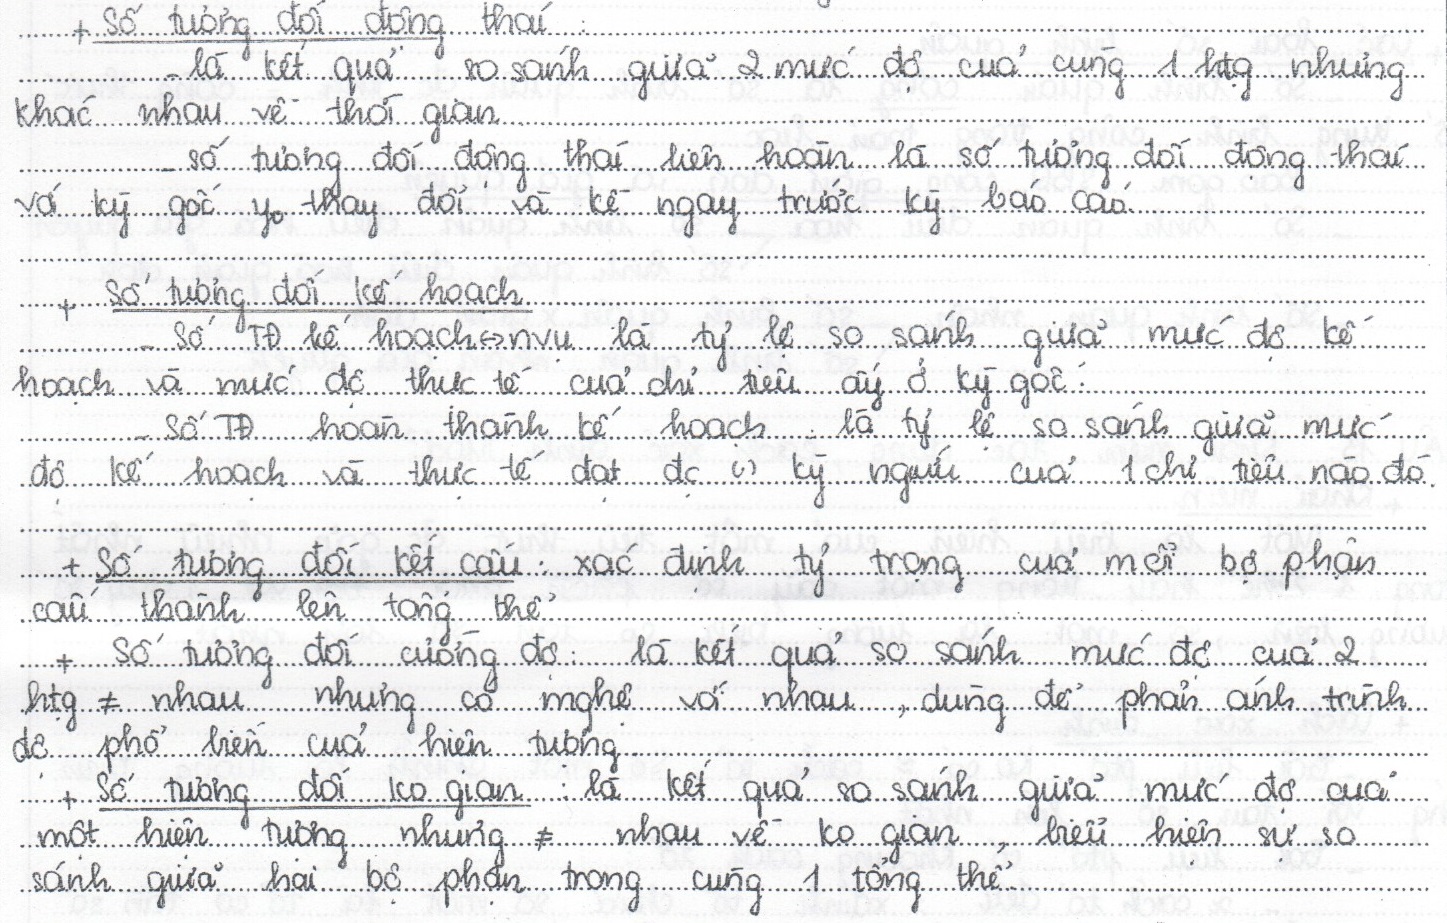 + Số tương đối động thái :
- là kết quả so sánh giữa 2 mức độ của cùng 1 htg nhưng
khác nhau về thời gian
- số tương đối động thái liên hoàn là số tương đối động thái
với kỳ gốc y₀ thay đổi và kề ngay trước kỳ báo cáo.
+ Số tương đối kế hoạch
- Số TĐ kế hoạch ⇔ nvụ là tỷ lệ so sánh giữa mức độ kế
hoạch và mức độ thực tế của chỉ tiêu ấy ở kỳ gốc.
- Số TĐ hoàn thành kế hoạch : là tỷ lệ so sánh giữa mức
độ kế hoạch và thực tế đạt đc kỳ ngcứu của 1 chỉ tiêu nào đó.
+ Số tương đối kết cấu : xác định tỷ trọng của mỗi bộ phận
cấu thành lên tổng thể
+ Số tương đối cường độ : là kết quả so sánh mức độ của 2
htg ≠ nhau nhưng có mqhệ với nhau, dùng để phản ánh trình
độ phổ biến của hiện tượng
+ Số tương đối ko gian : là kết quả so sánh giữa mức độ của
một hiện tượng nhưng ≠ nhau về ko gian, biểu hiện sự so
sánh giữa hai bộ phận trong cùng 1 tổng thể